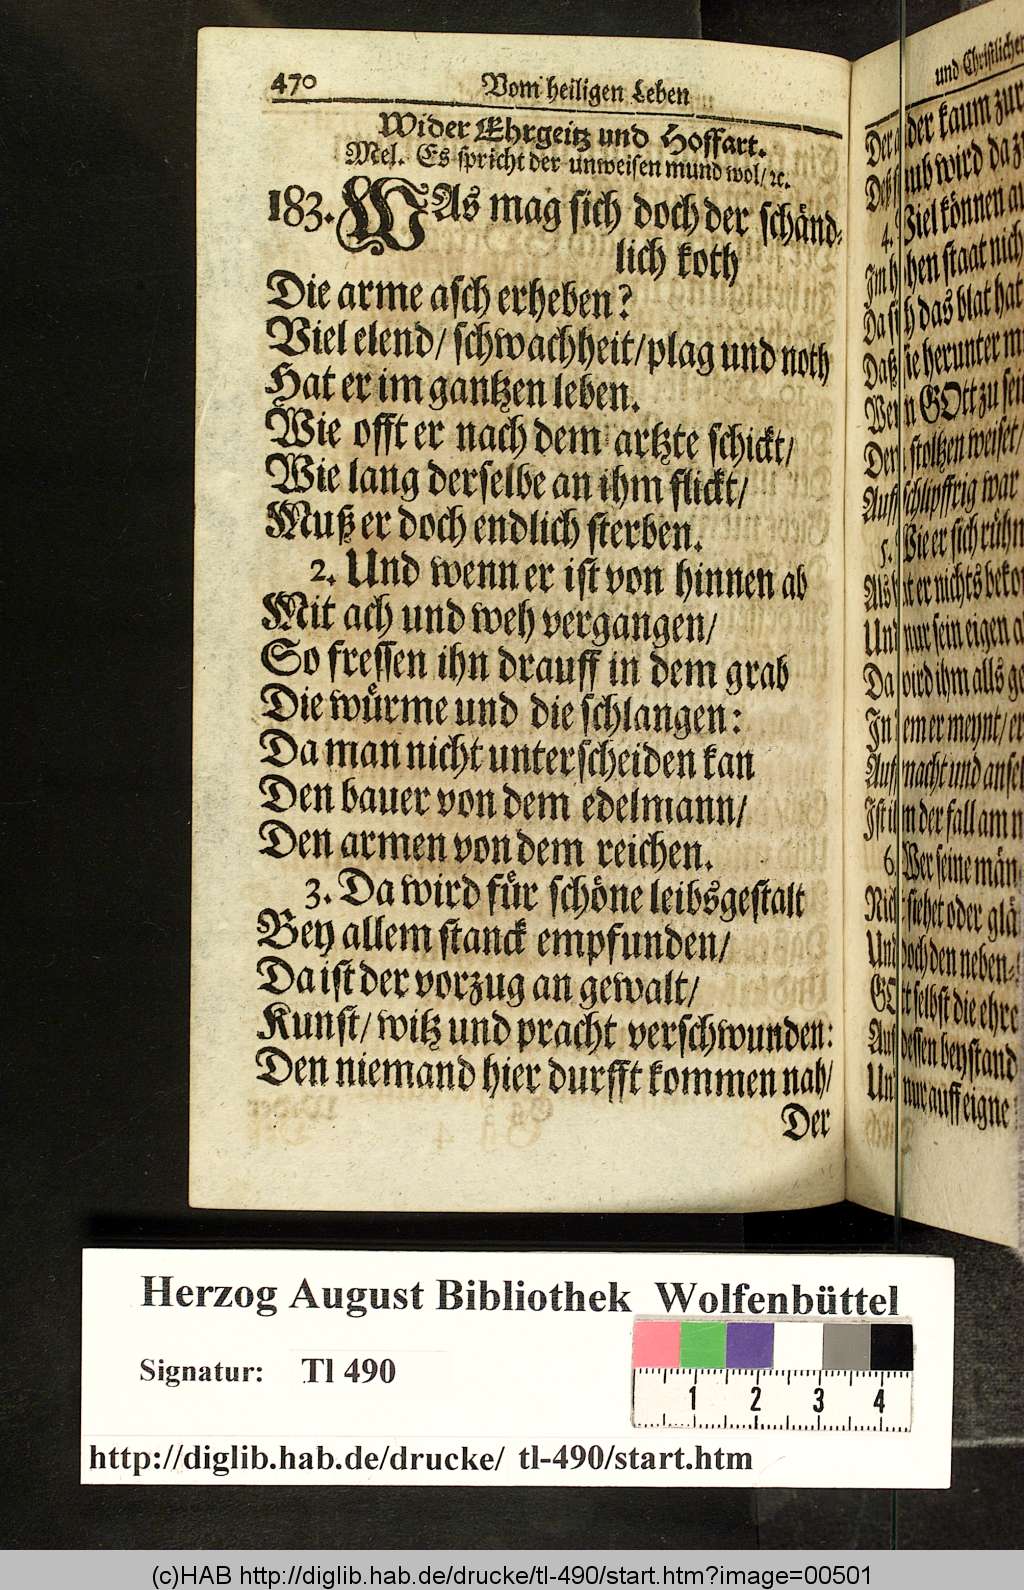 470 Vom heiligen Leben
Wider Ehrgeitz und Hoffart.
Mel. Es spricht der unweisen mund wol/ ꝛc.
183. WAs mag sich doch der schänd-
lich koth
Die arme asch erheben?
Viel elend/ schwachheit/plag und noth
Hat er im gantzen leben.
Wie offt er nach dem artzte schickt/
Wie lang derselbe an ihm flickt/
Muß er doch endlich sterben.
2. Und wenn er ist von hinnen ab
Mit ach und weh vergangen/
So fressen ihn drauff in dem grab
Die würme und die schlangen:
Da man nicht unterscheiden kan
Den bauer von dem edelmann/
Den armen von dem reichen.
3. Da wird für schöne leibsgestalt
Bey allem stanck empfunden/
Da ist der vorzug an gewalt/
Kunst/ witz und pracht verschwunden:
Den niemand hier durfft kommen nah/
Der
und Christlicher
der kaum zur
wird da
können
staat nich
das blat hat
herunter
GOtt zu
stoltzen weiset/
schlipffrig war
5. er sich
er nichts
Und nur sein eigen
Da wird ihm alls
In meynt/ er
macht und
der fall am
6. Wer seine män
siehet oder
Und doch den neben-
GOtt selbst die ehre
dessen beystand
Und nur auff eigne
Herzog August Bibliothek Wolfenbüttel
Signatur: Tl 490
1 2 3 4
http://diglib.hab.de/drucke/ tl-490/start.htm
(c)HAB http://diglib.hab.de/drucke/tl-490/start.htm?image=00501